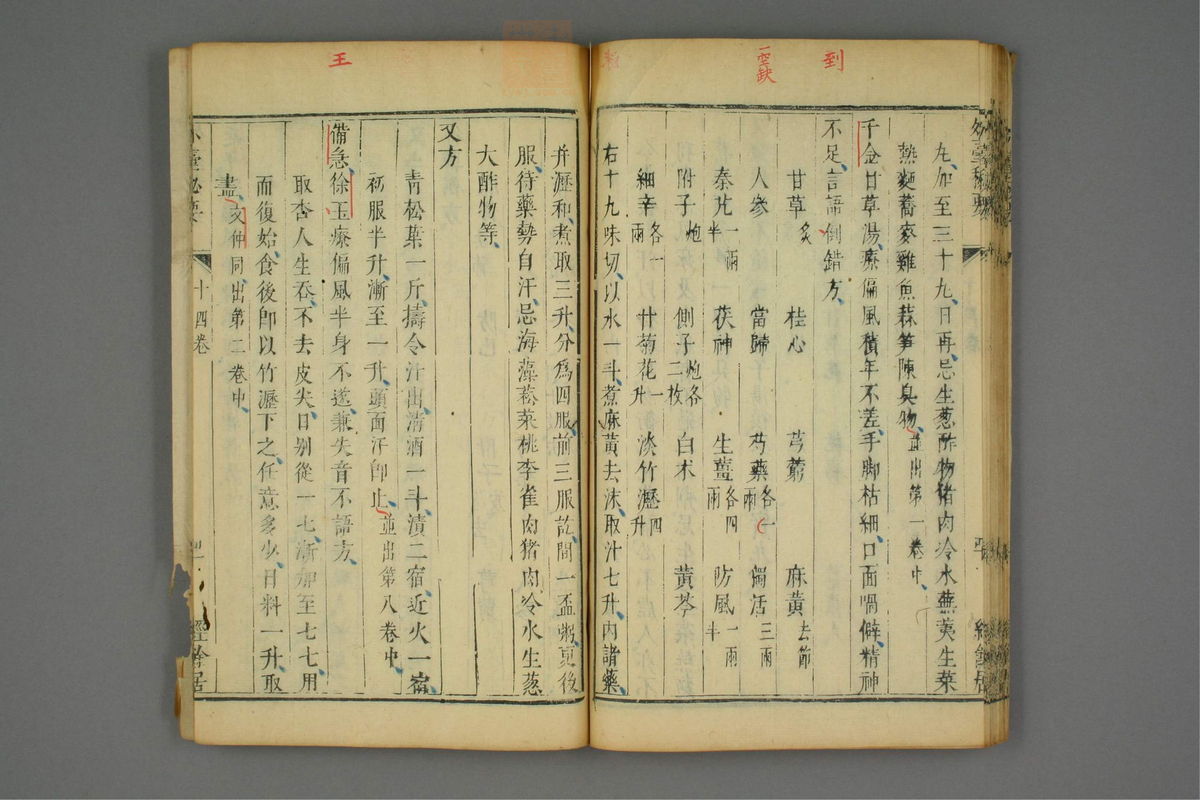 到
一 空缺
丸加至三十丸日再忌生葱酢物猪肉冷水蕪荑生菜
熱麵蕎麥雞魚蒜笋陳臭物並出第一卷中
千金甘草湯療偏風積年不差手脚枯細口面喎僻精神
不足言語倒錯方
甘草炙 桂心 芎藭 麻黃去節
人參 當歸 芍藥各一兩 獨活三兩
秦艽一兩半 茯神 生薑各四兩 防風一兩半
附子炮 側子炮各二枚 白术 黃芩
細辛各一兩 甘菊花一升 淡竹瀝四升
右十九味切以水一斗煮麻黃去沫取汁七升内諸藥
王
并瀝和煮取三升分爲四服前三服訖間一盃粥更後
服待藥勢自汗忌海藻菘菜桃李雀肉猪肉冷水生葱
大酢物等
又方
青松葉一斤擣令汁出清酒一斗漬二宿近火一宿
初服半升漸至一升頭面汗即止並出第八卷中
備急徐玉療偏風半身不遂兼失音不語方
取杏人生吞不去皮尖日别從一七漸加至七七用
而復始食後即以竹瀝下之任意多少日料一升取
盡文仲同出第二卷中
十四卷
經餘居